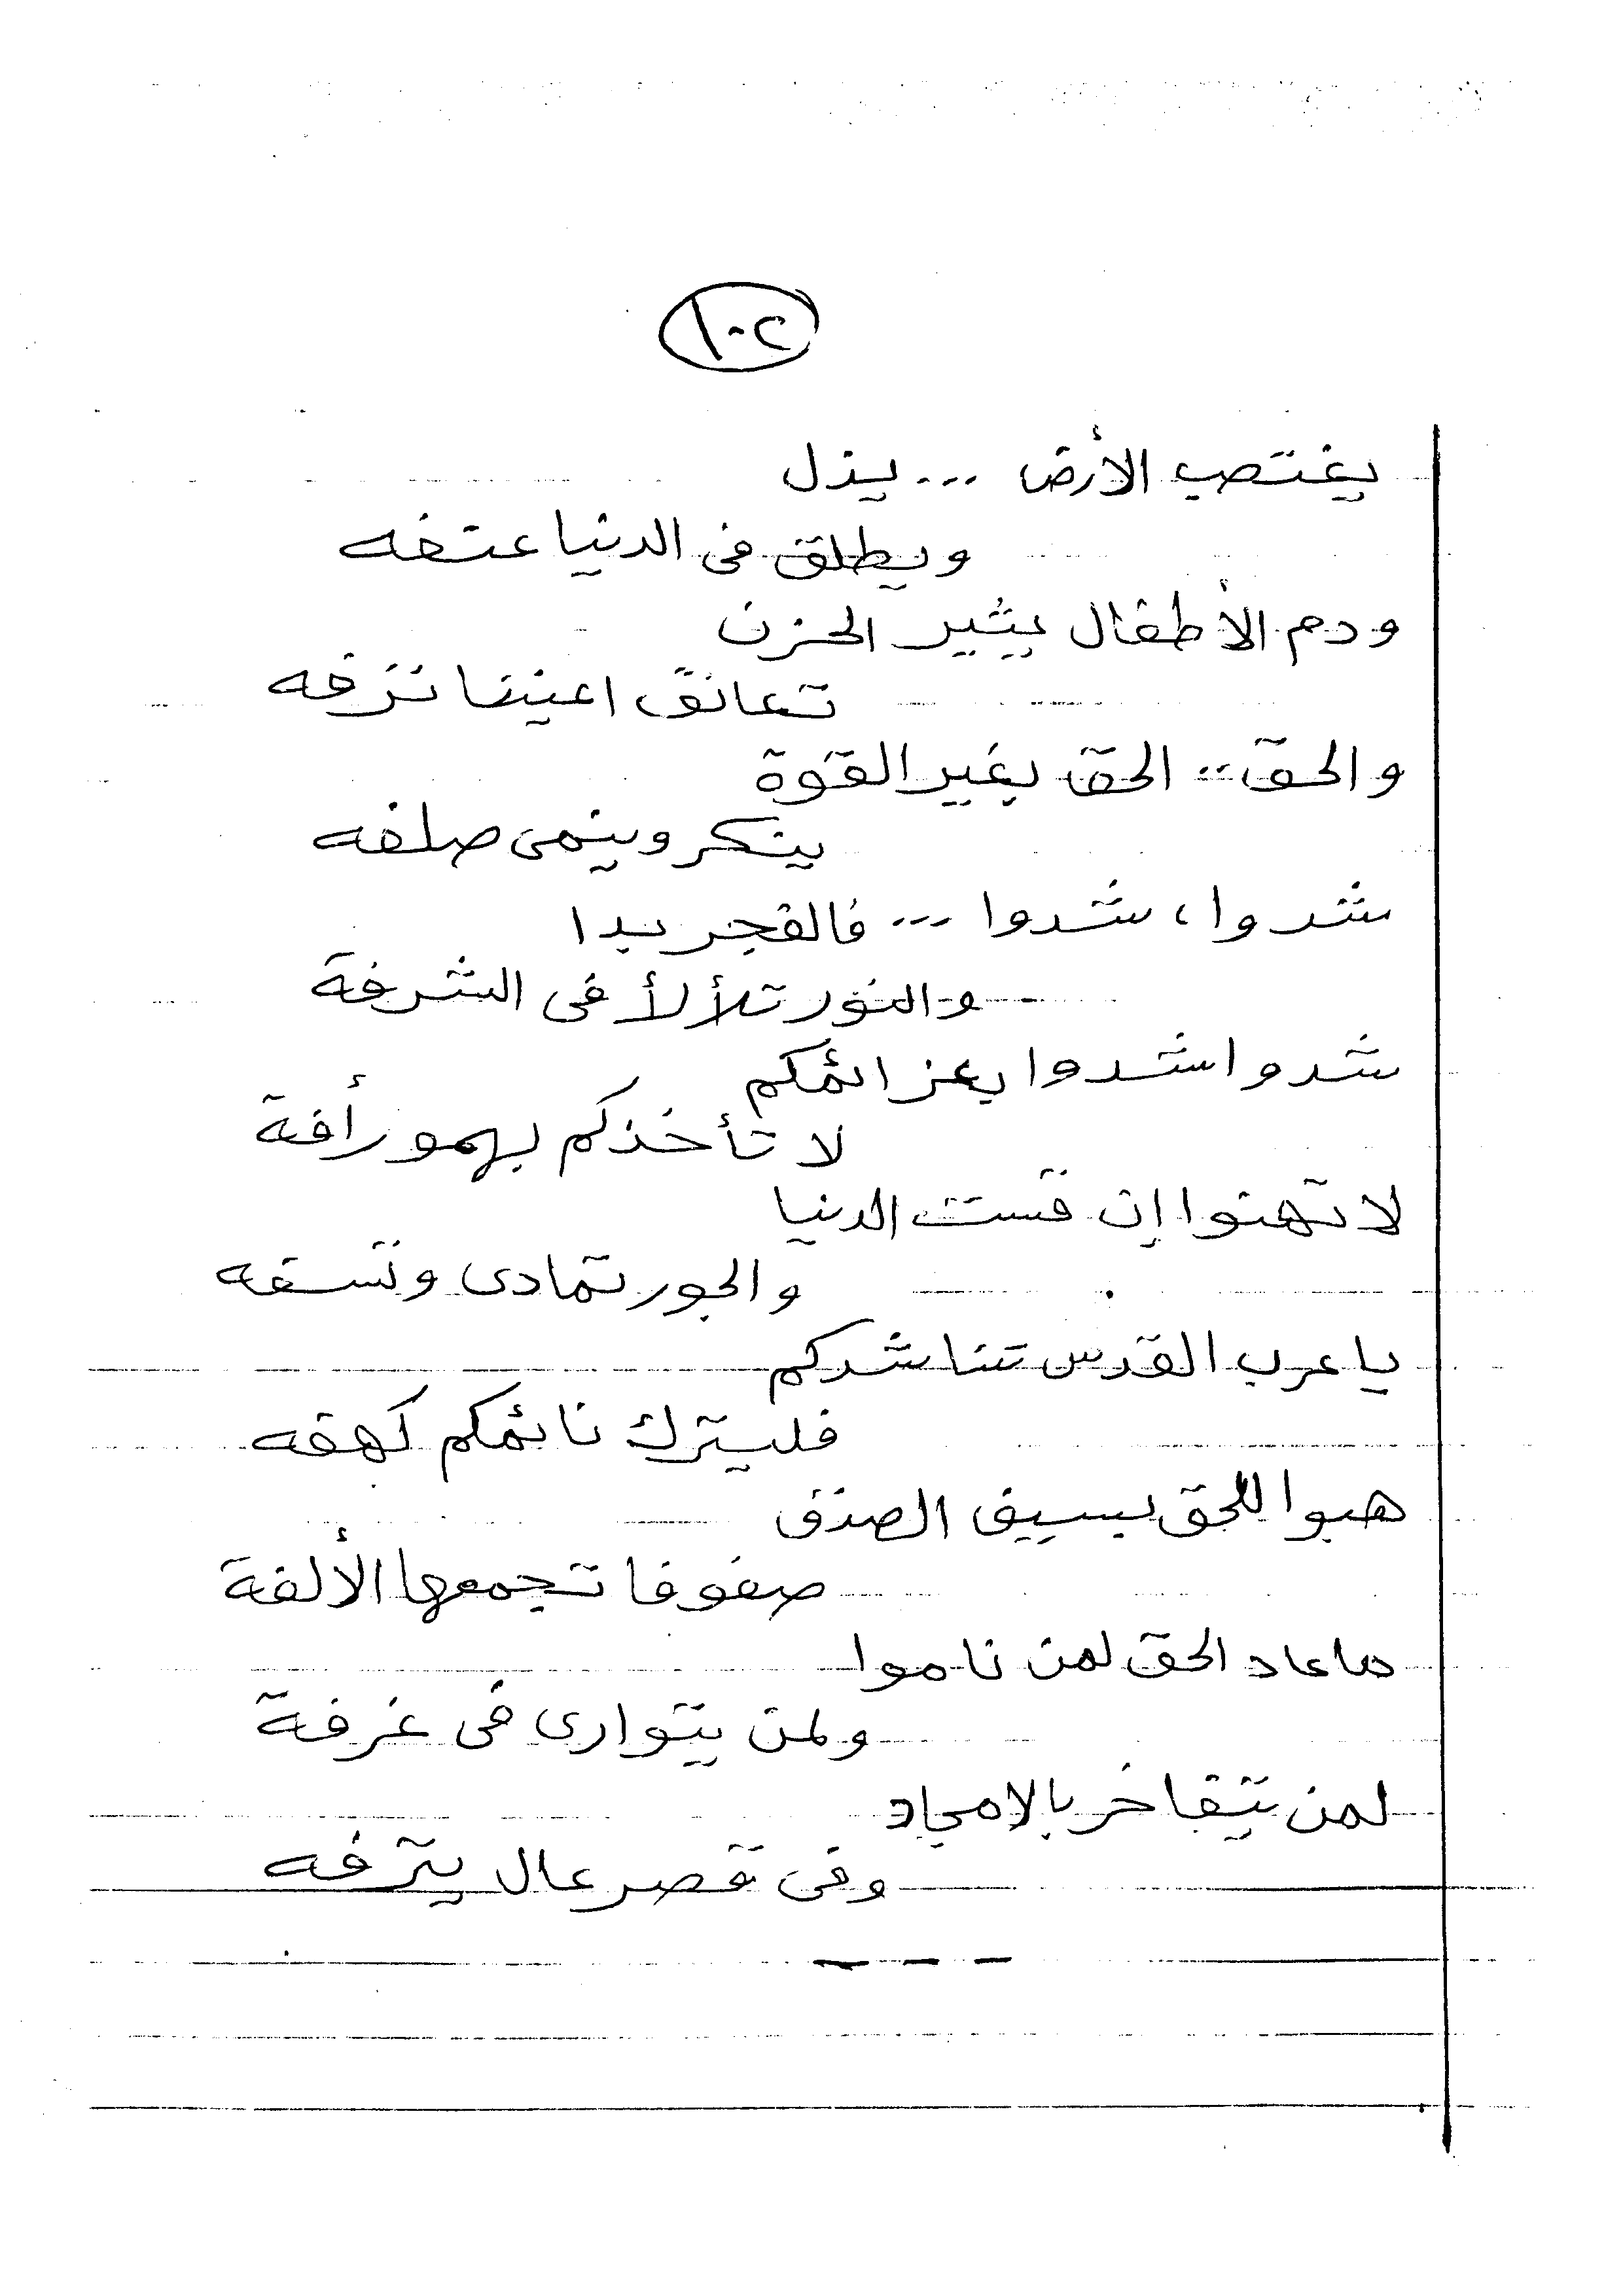 ١٠٢
يغتصب الأرض ... يذل
ويطلق فى الدنيا عنفه
ودم الأطفال يثير الحزن
تعانق اعيننا نزفه
والحق .. الحق بغير القوة
ينكر وينمى صلفه
شدوا، شدوا ... فالفجر بدا
والنور تلألأ فى الشرفة
شدوا شدوا بعزائمكم
لا تأخذكم بهمو رأفة
لا تهنوا إن قست الدنيا
والجور تمادى وتسفه
يا عرب القدس تناشدكم
فليترك نائمكم كهفه
هبوا للحق بسيف الصدق
صفوفا تجمعها الألفة
ما عاد الحق لمن ناموا
ولمن يتوارى فى غرفة
لمن يتفاخر بالامجاد
وفى قصر عال يترفه